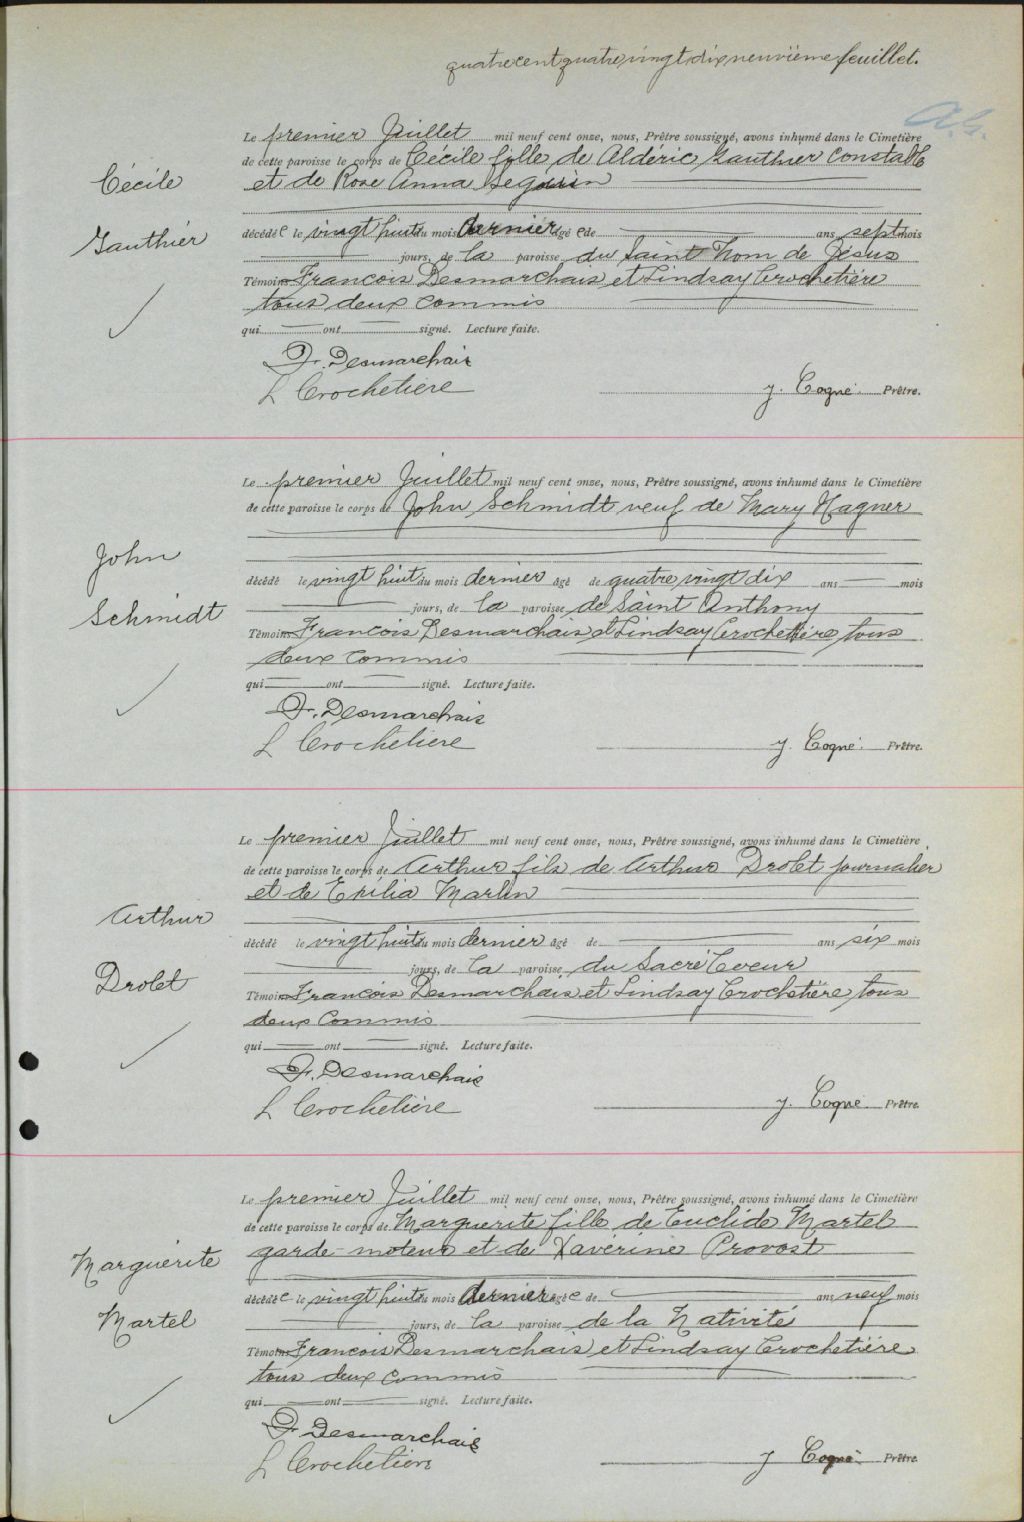 quatre cent quatre vingt dix neuvième feuillet.
A.G.
Le premier Juillet mil neuf cent onze, nous, Prêtre soussigné, avons inhumé dans le Cimetière
de cette paroisse le corps de Cécile fille de Aldéric Gauthier constable
et de Rose Anna Seguin
Cécile
Gauthier
décédée le vingt huit du mois dernier âgée de ans sept mois
jours, de la paroisse du Saint Nom de Jésus
Témoins François Desmarchais et Lindsay Crochetière
tous deux commis
qui ont signé. Lecture faite.
F. Desmarchais
L Crochetiere
J. Cogné. Prêtre.
Le premier Juillet mil neuf cent onze, nous, Prêtre soussigné, avons inhumé dans le Cimetière
de cette paroisse le corps de John Schmidt veuf de Mary Wagner
John
Schmidt
décédé le vingt huit du mois dernier âgé de quatre vingt dix ans mois
jours, de la paroisse de Saint Anthony
Témoins François Desmarchais et Lindsay Crochetière tous
deux commis
qui ont signé. Lecture faite.
F. Desmarchais
L Crochetiere
J. Cogné. Prêtre.
Le premier Juillet mil neuf cent onze, nous, Prêtre soussigné, avons inhumé dans le Cimetière
de cette paroisse le corps de Arthur fils de Arthur Drolet journalier
et de Exilia Marlin
Arthur
Drolet
décédé le vingt huit du mois dernier âgé de ans six mois
jours, de la paroisse du Sacré Coeur
Témoins François Desmarchais et Lindsay Crochetière tous
deux commis
qui ont signé. Lecture faite.
F. Desmarchais
L Crochetière
J. Cogné. Prêtre.
Le premier Juillet mil neuf cent onze, nous, Prêtre soussigné, avons inhumé dans le Cimetière
de cette paroisse le corps de Marguerite fille de Euclide Martel
garde-moteur et de Xavérine Provost
Marguérite
Martel
décédée le vingt huit du mois dernier âgée de ans neuf mois
jours, de la paroisse de la Nativité
Témoins François Desmarchais et Lindsay Crochetière
tous deux commis
qui ont signé. Lecture faite.
F. Desmarchais
L Crochetiere
J Cogné. Prêtre.